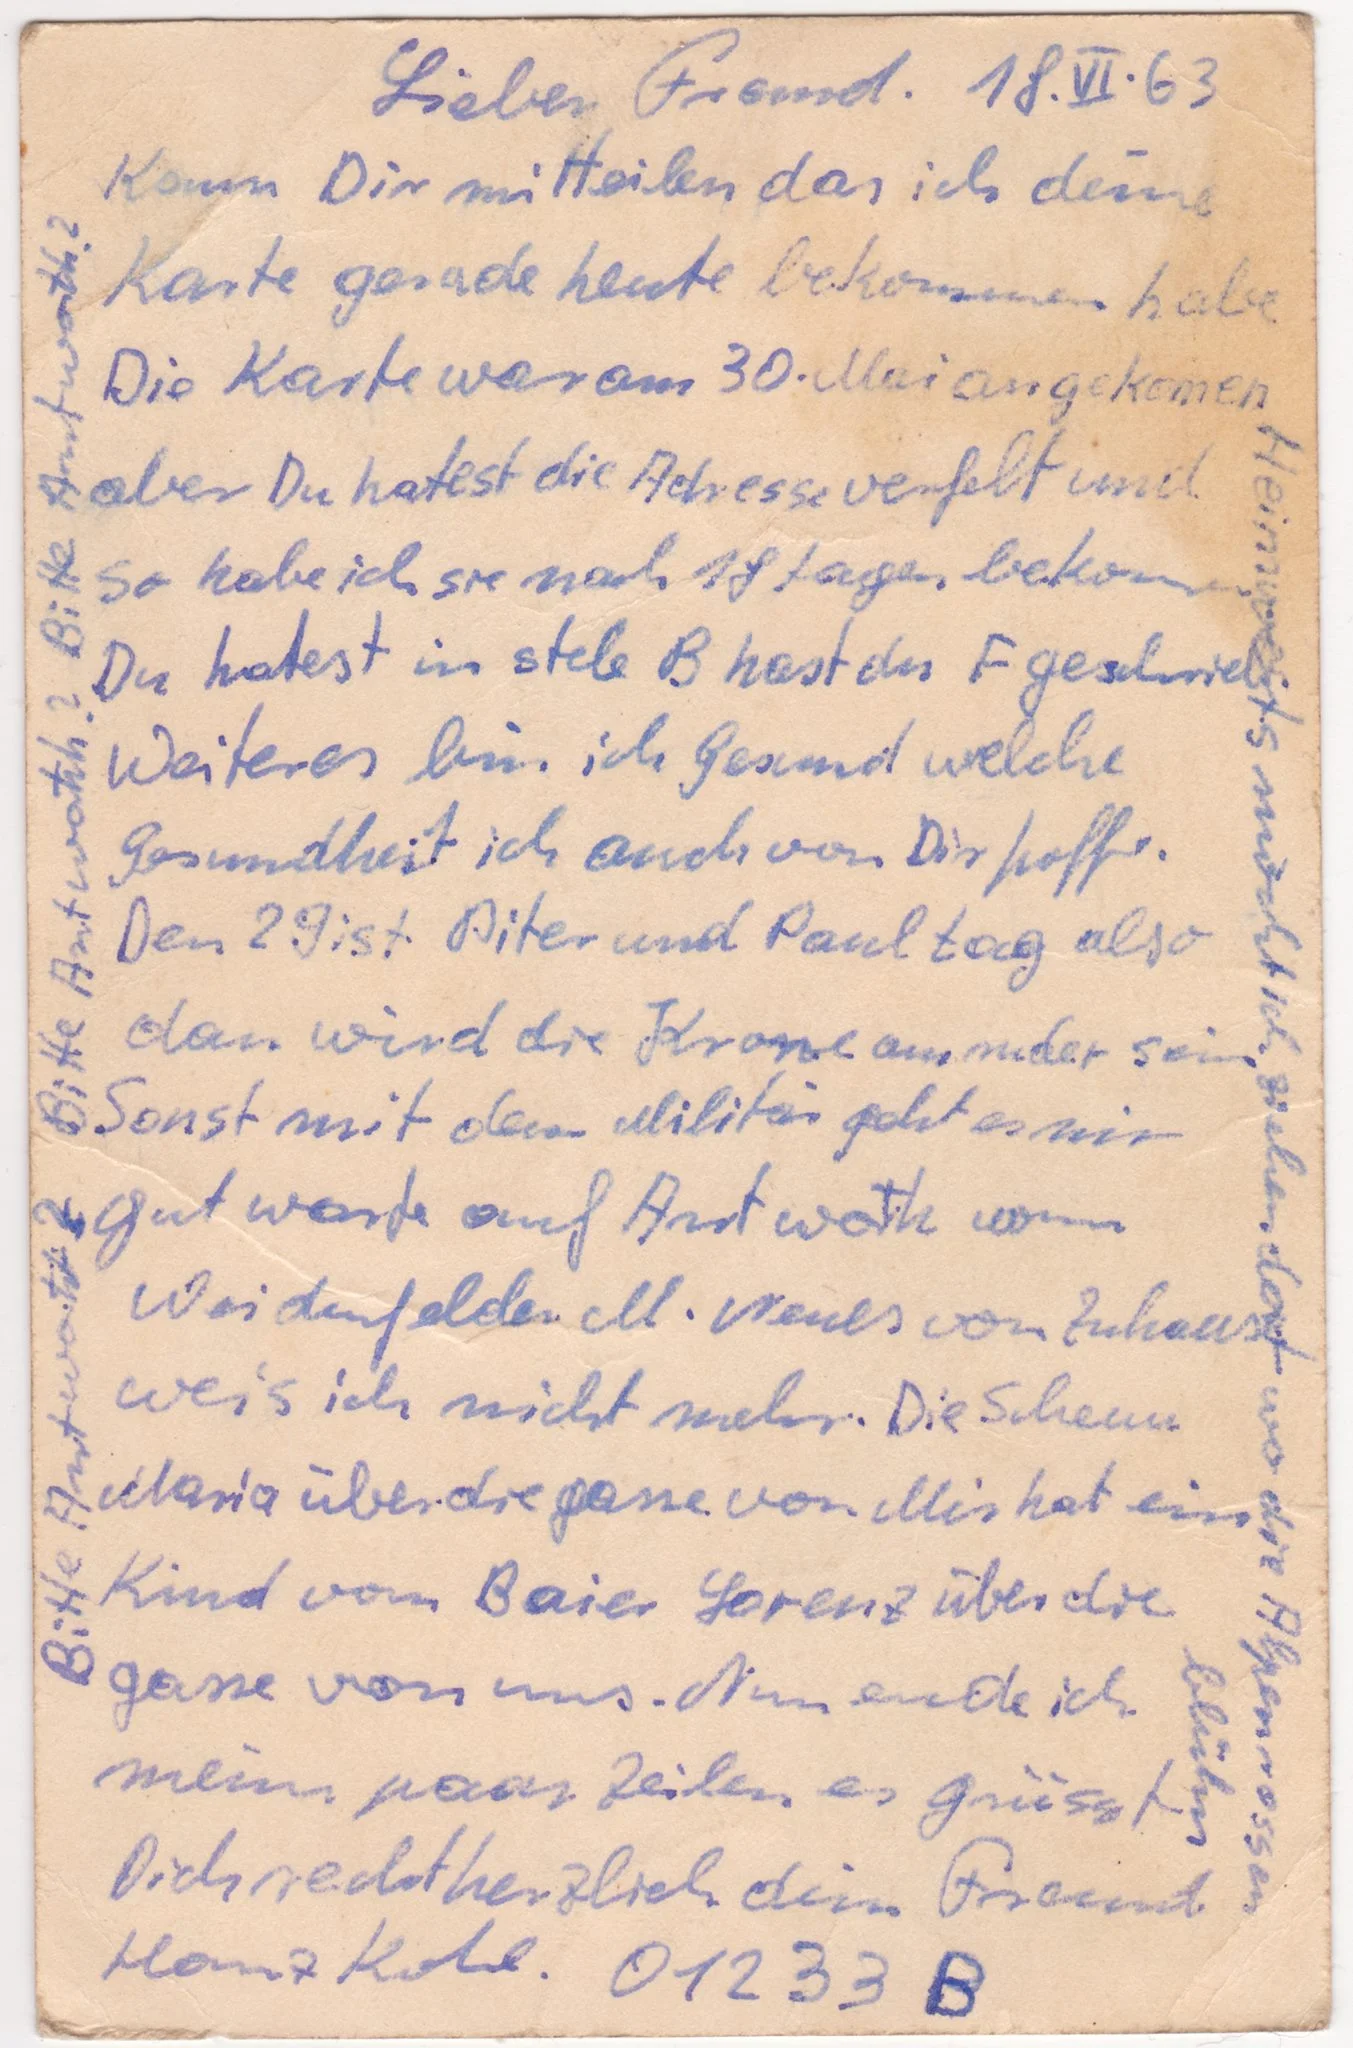 Lieber Freund. 18.VI.63
Kann Dir mitteilen das ich deine
Karte gerade heute bekommen habe
Die Karte war am 30. Mai angekomen
aber Du hatest die Adresse verfelt und
so habe ich sie nach 18 tagen bekomm
Du hatest in stele B hast du F geschrieb.
Weiteres bin ich Gesund welche
Gesundheit ich auch von Dir hoffe.
Den 29 ist Piter und Paul tag also
dan wird die Krone am ruder sein
Sonst mit dem Militär geht es mir
gut warte auf Antwoth vom
Weidenfelder M. Neues von Zuhaus
weis ich nicht mehr. Die
Maria über die gasse von Mir hat ein
Kind vom Baier Lorenz über die
gasse von uns. Nun ende ich
meine paar Zeilen es grüsst
Dich recht herzlich dein Freund
Hanz Kohl. 01233 B
Heimwerts möcht ich ziehen dort wo die Alpenrossen
blühn
Bitte Antwoth? Bitte Antwoth? Bitte Antwoth?